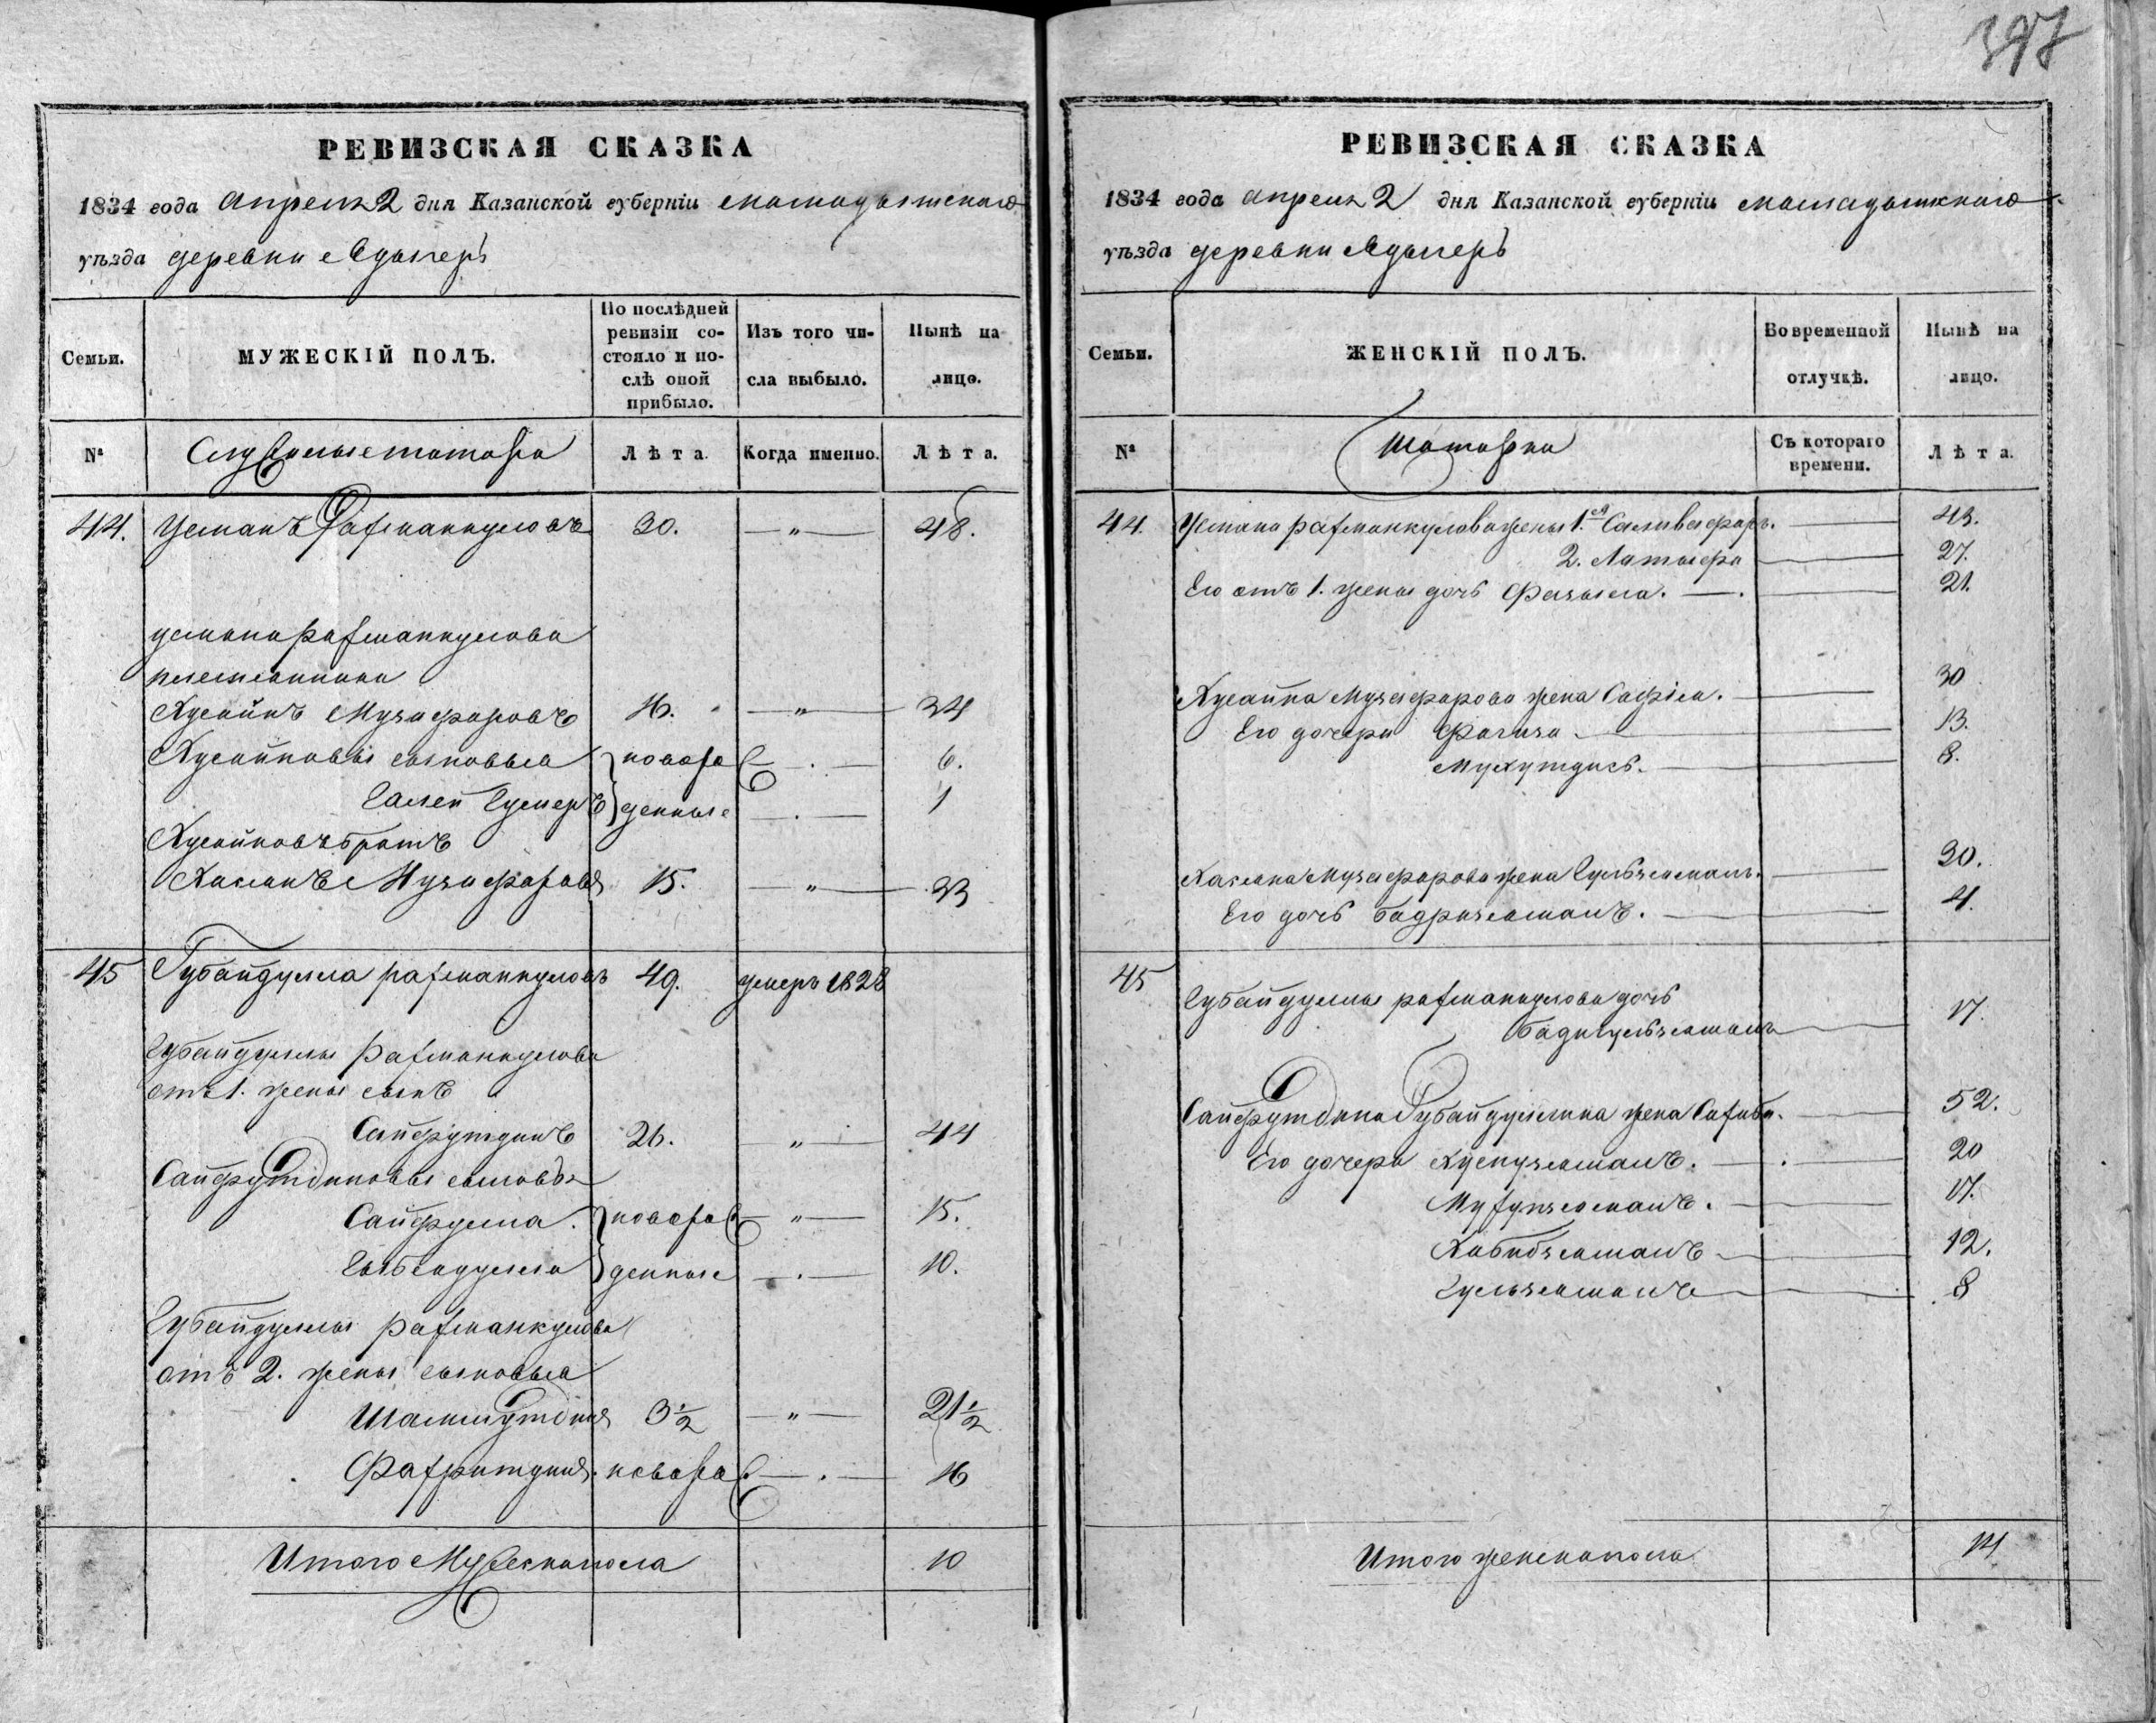 397
РЕВИЗСКАЯ СКАЗКА
1834 года апреля 2 дня Казанской губерніи мамадышскаго
уѣзда деревни Адыгеръ
Семьи.
МУЖЕСКІЙ ПОЛЪ.
По послѣдней ревизіи со-
стояло и по-
слѣ оной
прибыло.
Изъ того чи-
сла выбыло.
Нынѣ на
лицо.
№
Служилые татара
Лѣта.
Когда именно.
Лѣта.
44. Усманъ Рахманкуловъ 30. — „ — 48.
усмана рахманкулова
племянники
Хусаинъ Музафаровъ 16. — „ — 34
Хусаиновы сыновья новоро — . — 6.
Галей Гумеръ жденные — . — 1
Хусаиновъ братъ
Хасанъ Музафаровъ 15. — „ — 33
45 Губайдулла рахманкуловъ 49. умеръ 1828
Губайдуллы рахманкулова
отъ 1. жены сынъ
Сайфутдинъ 26. — „ — 44
Сайфутдиновы сыновья
Сайфулла. новорож — „ — 15.
денные — . — 10.
Губайдуллы рахманкулова
отъ 2. жены сыновья
3½ — „ — 21½
Фахритдинъ. новорож — . — 16
Итого Мужеска пола 10
РЕВИЗСКАЯ СКАЗКА
1834 года апреля 2 дня Казанской губерніи мамадышскаго
уѣзда деревни Адыгеръ
Семьи.
ЖЕНСКІЙ ПОЛЪ.
Во временной
отлучкѣ.
Нынѣ на
лицо.
№
Татарки
Съ котораго
времени.
Лѣта.
44. Усмана рахманкулова жены 1.ая 43.
2. Латыфа 27.
Его отъ 1. жены дочь 21.
Хусаина Музафарова жена Сафія. 30
Его дочери 13.
8.
Хасана Музафарова жена Гульзямалъ. 30.
Его дочь Бадризямалъ. 4.
45
Губайдуллы рахманкулова дочь
Бадигульзямалъ 17.
Сайфутдина Губайдуллина жена Сахиба. 52.
Его дочери Хуснузямалъ. 20
17.
Хабибзямалъ 12.
Гульзямалъ 8
Итого женска пола 14